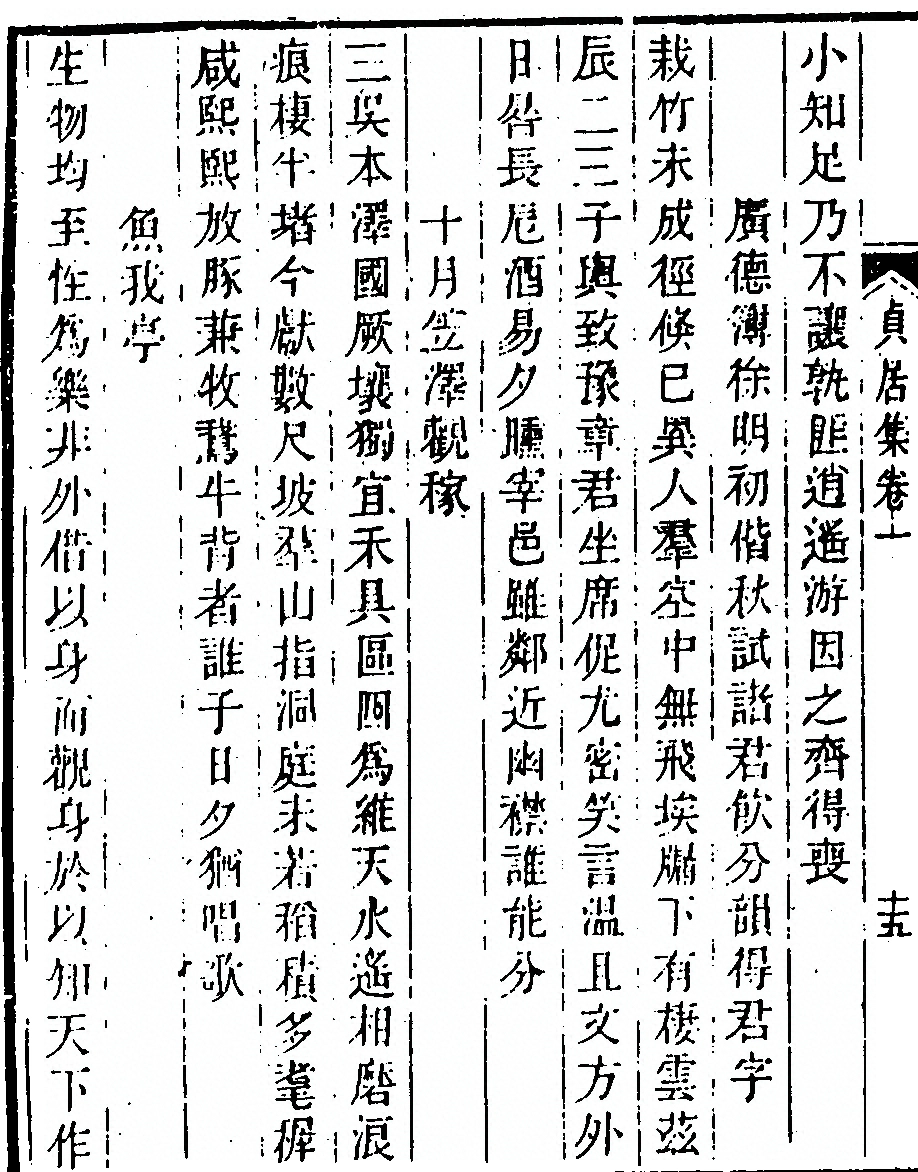 貞居集卷一
十五
小知足乃不讓孰匪逍遙游因之齊得喪
廣德簿徐明初偕秋試諸君飲分韻得君字
栽竹未成徑倐已異人羣空中無飛埃牖下有棲雲茲
辰二三子與致豫章君坐席促尤密笑言溫且文方外
日咎長卮酒易夕醺宰邑雖鄰近幽襟誰能分
十月笠澤觀稼
三吳本澤國厥壤獨宜禾具區四為維天水遙相磨浪
痕棲牛堵今獻數尺坡羣山指洞庭未若稻積多耄穉
咸熙熙放豚兼牧鵞牛背者誰子日夕猶唱歌
魚我亭
生物均至性為樂非外借以身而觀身於以知天下作